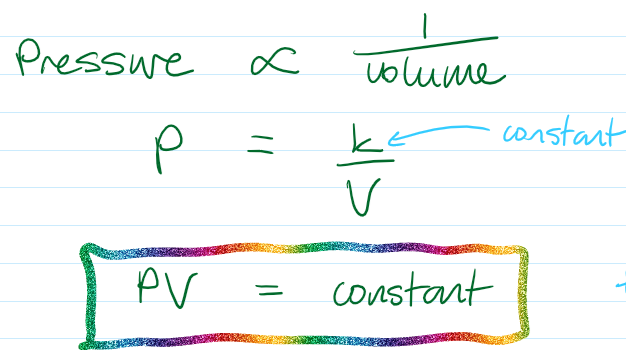 Pressure ∝ 1/volume
P = k/V ← constant
PV = constant